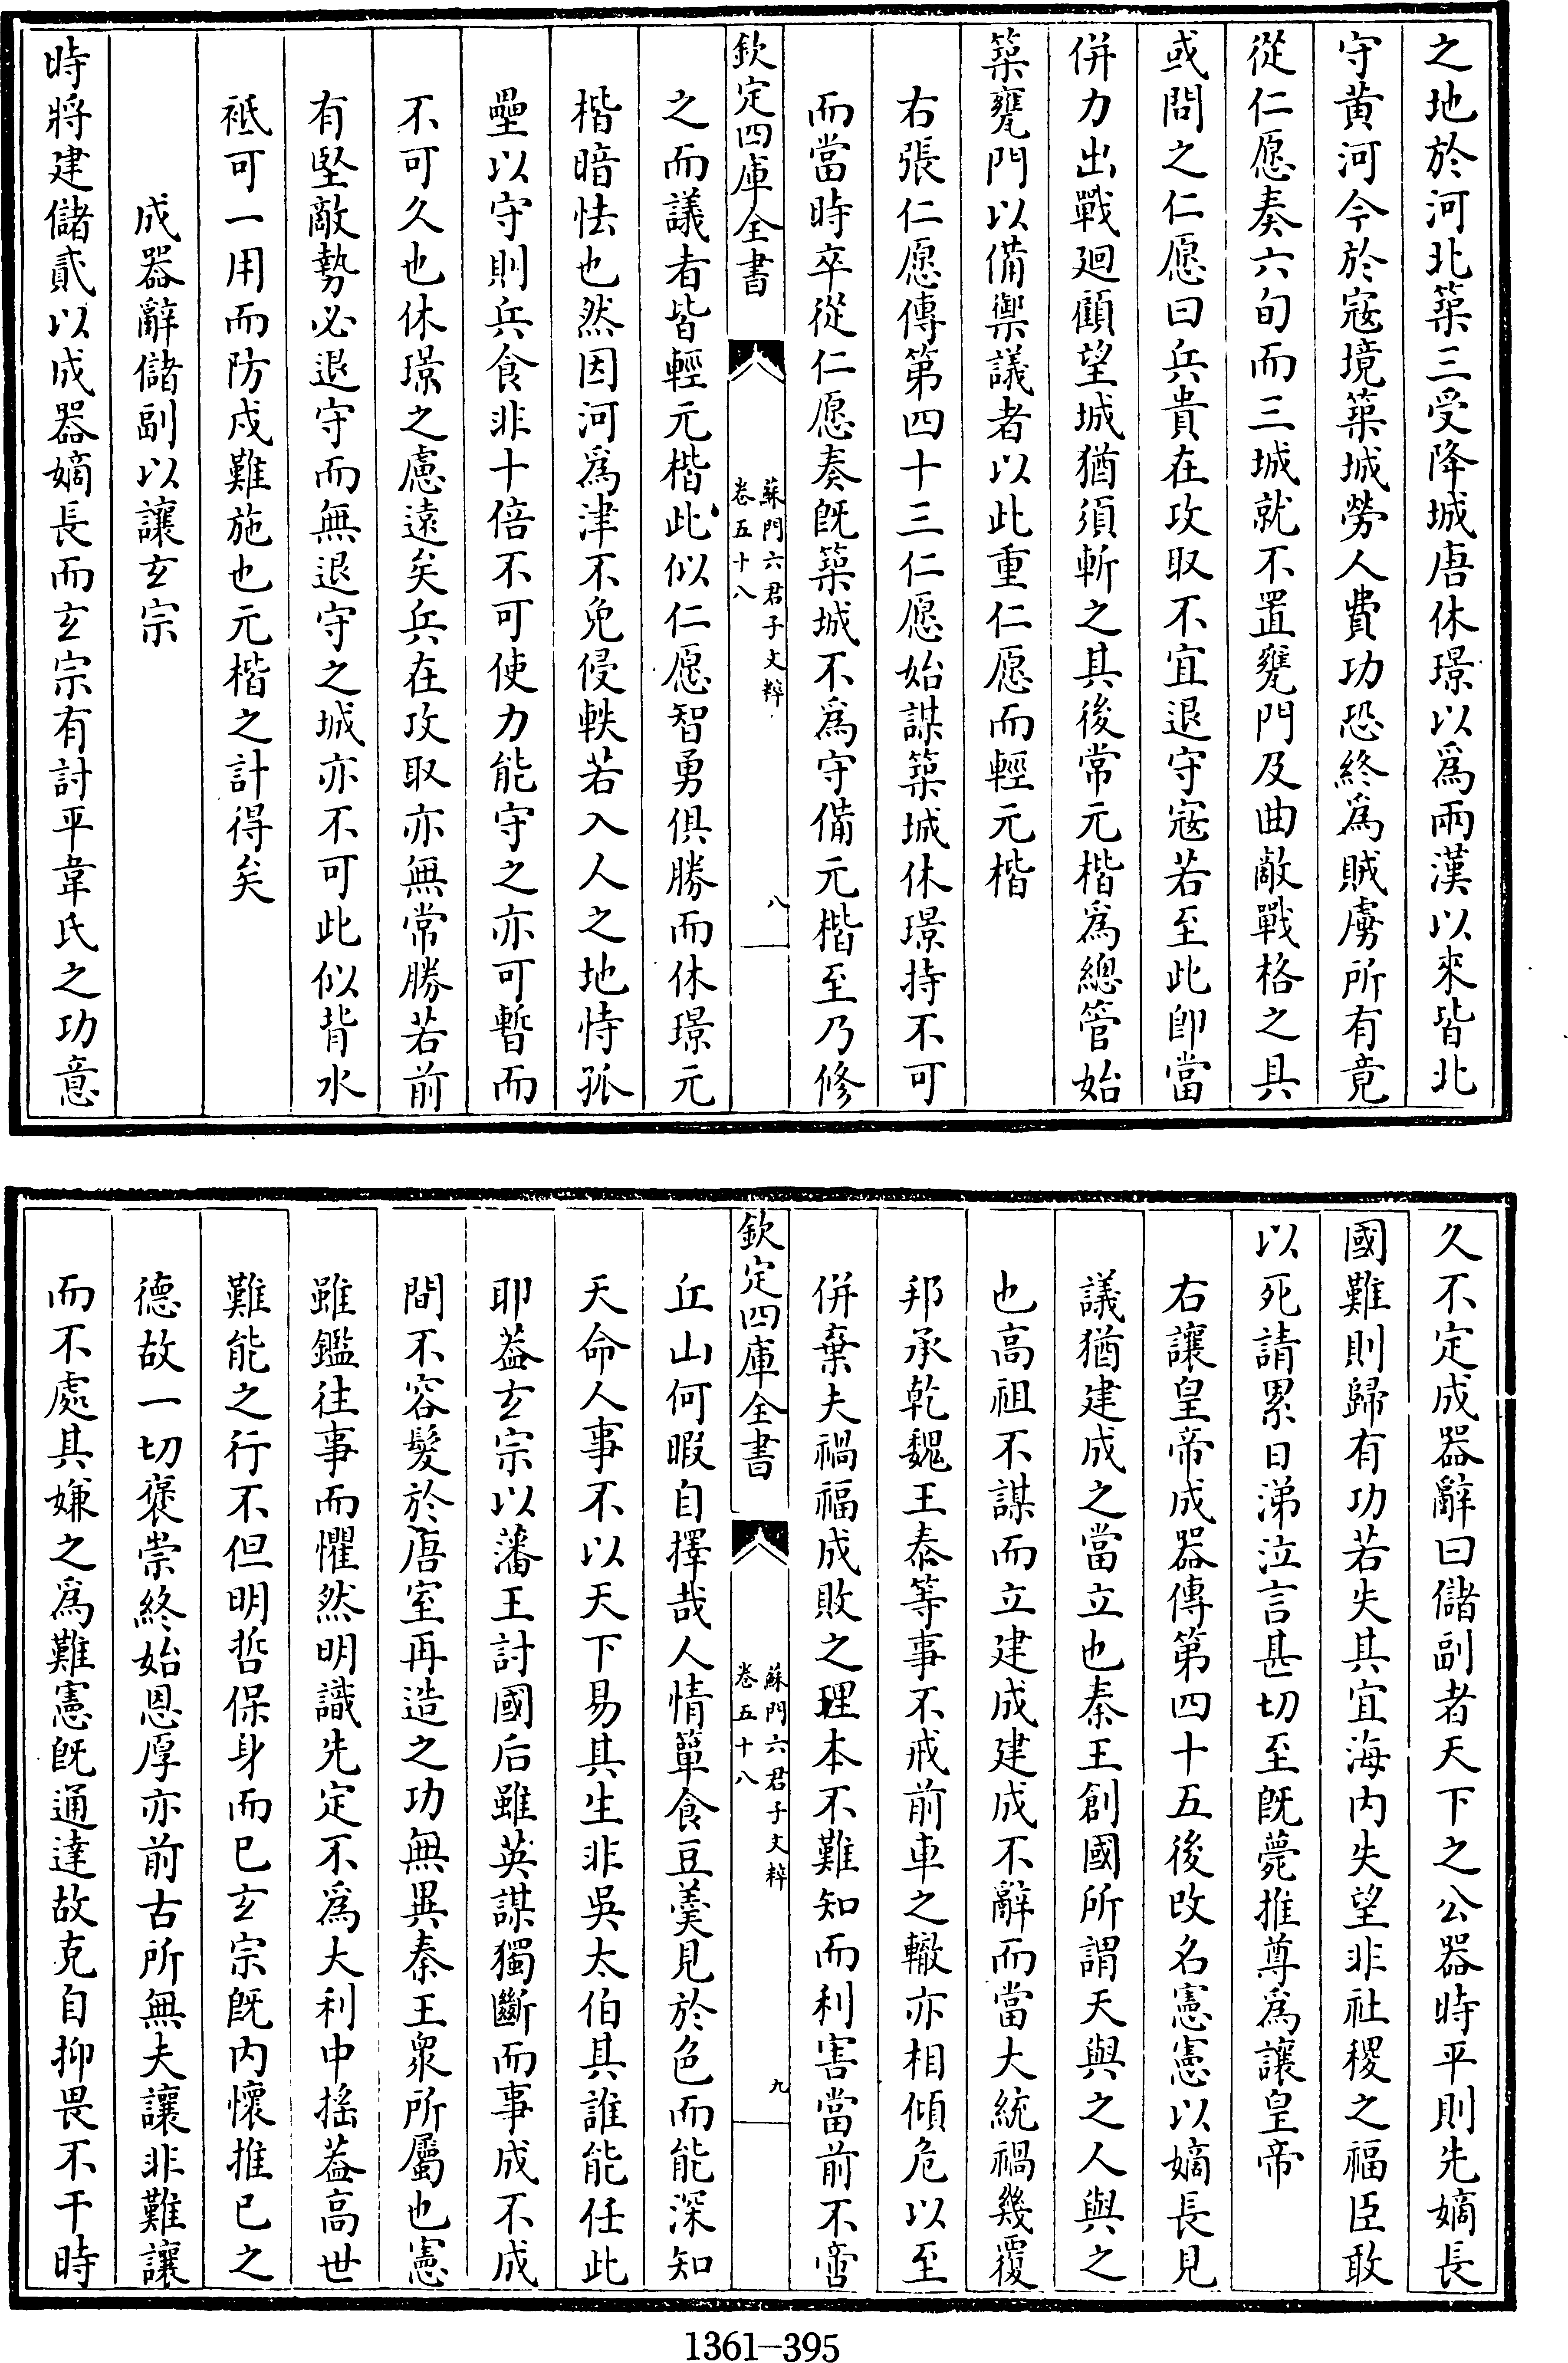 之地於河北築三受降城唐休璟以爲兩漢以來皆北
守黄河今於宼境築城勞人費功恐終爲賊虜所有竟
從仁愿奏六旬而三城就不置甕門及曲敵戰格之具
或問之仁愿曰兵貴在攻取不宜退守宼若至此即當
併力出戰廻顧望城猶須斬之其後常元楷爲總管始
築甕門以備禦議者以此重仁愿而輕元楷
右張仁愿傳第四十三仁愿始謀築城休璟持不可
而當時卒從仁愿奏既築城不爲守備元楷至乃修
欽定四庫全書
蘇門六君子文粹
卷五十八
八
之而議者皆輕元楷此似仁愿智勇俱勝而休璟元
楷暗怯也然因河爲津不免侵軼若入人之地恃孤
壘以守則兵食非十倍不可使力能守之亦可暫而
不可久也休璟之慮遠矣兵在攻取亦無常勝若前
有堅敵勢必退守而無退守之城亦不可此似背水
祗可一用而防戍難施也元楷之計得矣
成器辭儲副以讓玄宗
時將建儲貳以成器嫡長而玄宗有討平韋氏之功意
久不定成器辭曰儲副者天下之公器時平則先嫡長
國難則歸有功若失其宜海内失望非社稷之福臣敢
以死請累日涕泣言甚切至既薨推尊爲讓皇帝
右讓皇帝成器傳第四十五後改名憲憲以嫡長見
議猶建成之當立也秦王創國所謂天與之人與之
也高祖不謀而立建成建成不辭而當大統禍幾覆
邦承乾魏王泰等事不戒前車之轍亦相傾危以至
併棄夫禍福成敗之理本不難知而利害當前不啻
欽定四庫全書
蘇門六君子文粹
卷五十八
九
丘山何暇自擇哉人情簞食豆羮見於色而能深知
天命人事不以天下易其生非吳太伯其誰能任此
耶葢玄宗以藩王討國后雖英謀獨斷而事成不成
間不容髮於唐室再造之功無異秦王衆所屬也憲
雖鑑往事而懼然明識先定不爲大利中摇葢高世
難能之行不但明哲保身而已玄宗既内懷推已之
德故一切褒崇終始恩厚亦前古所無夫讓非難讓
而不處其嫌之爲難憲既通達故克自抑畏不干時
1361-395